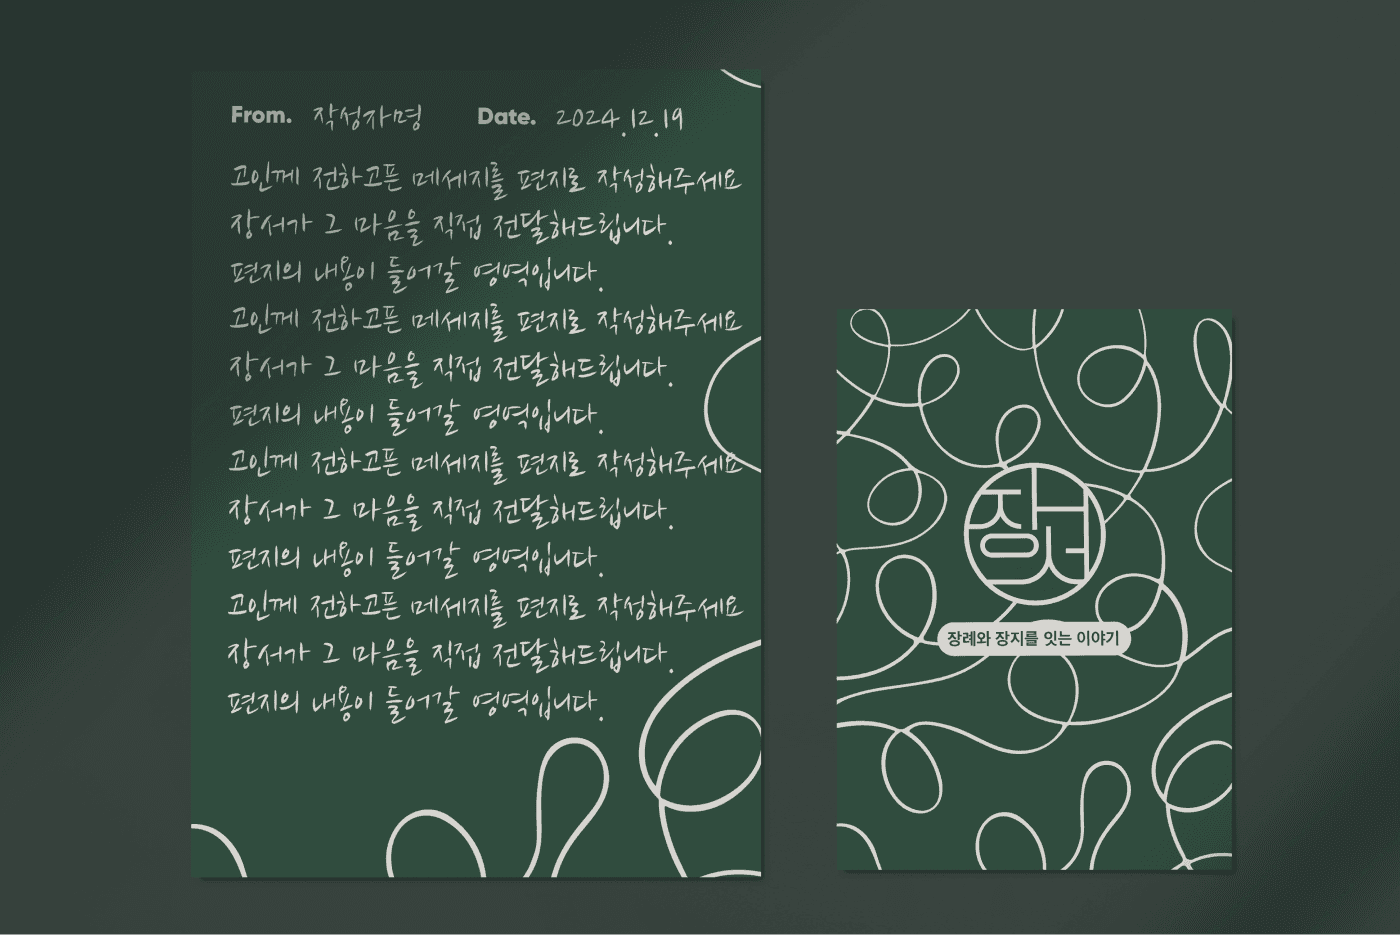 From. 작성자명 Date. 2024.12.19
고인께 전하고픈 메세지를 편지로 작성해주세요
장서가 그 마음을 직접 전달해드립니다.
편지의 내용이 들어갈 영역입니다.
고인께 전하고픈 메세지를 편지로 작성해주세요
장서가 그 마음을 직접 전달해드립니다.
편지의 내용이 들어갈 영역입니다.
고인께 전하고픈 메세지를 편지로 작성해주세요
장서가 그 마음을 직접 전달해드립니다.
편지의 내용이 들어갈 영역입니다.
고인께 전하고픈 메세지를 편지로 작성해주세요
장서가 그 마음을 직접 전달해드립니다.
편지의 내용이 들어갈 영역입니다.
장서
장례와 장지를 잇는 이야기